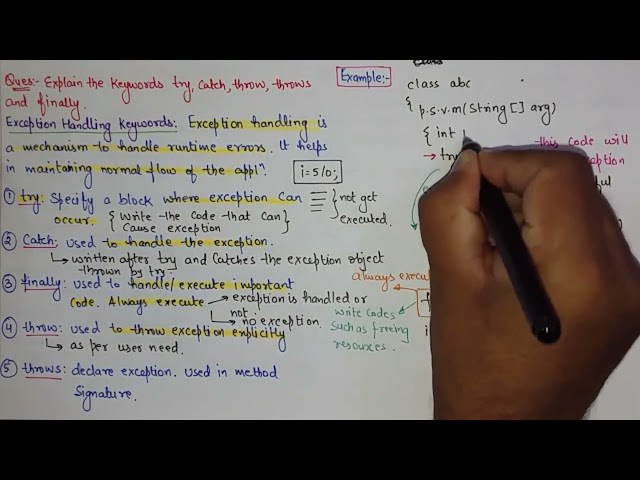 Ques:- Explain the keywords try, catch, throw, throws
and finally.
Exception Handling Keywords: Exception handling is
a mechanism to handle runtime errors. It helps
in maintaining normal flow of the applⁿ.
i=5/0;
① try: Specify a block where exception can
occur. { Write the code that can
cause exception
} not get
executed.
② Catch: used to handle the exception.
↳ written after try and catches the exception object
thrown by try-
③ finally: used to handle/execute important
code. Always execute → exception is handled or
not.
↳ no exception.
④ throw: used to throw exception explicity
↳ as per user need.
⑤ throws: declare exception. used in method
signature.
Example:-
class
class abc
{ p.s.v.m(String [] arg)
{ int
→ try
this code will
always execute
write codes
such as freeing
resources.